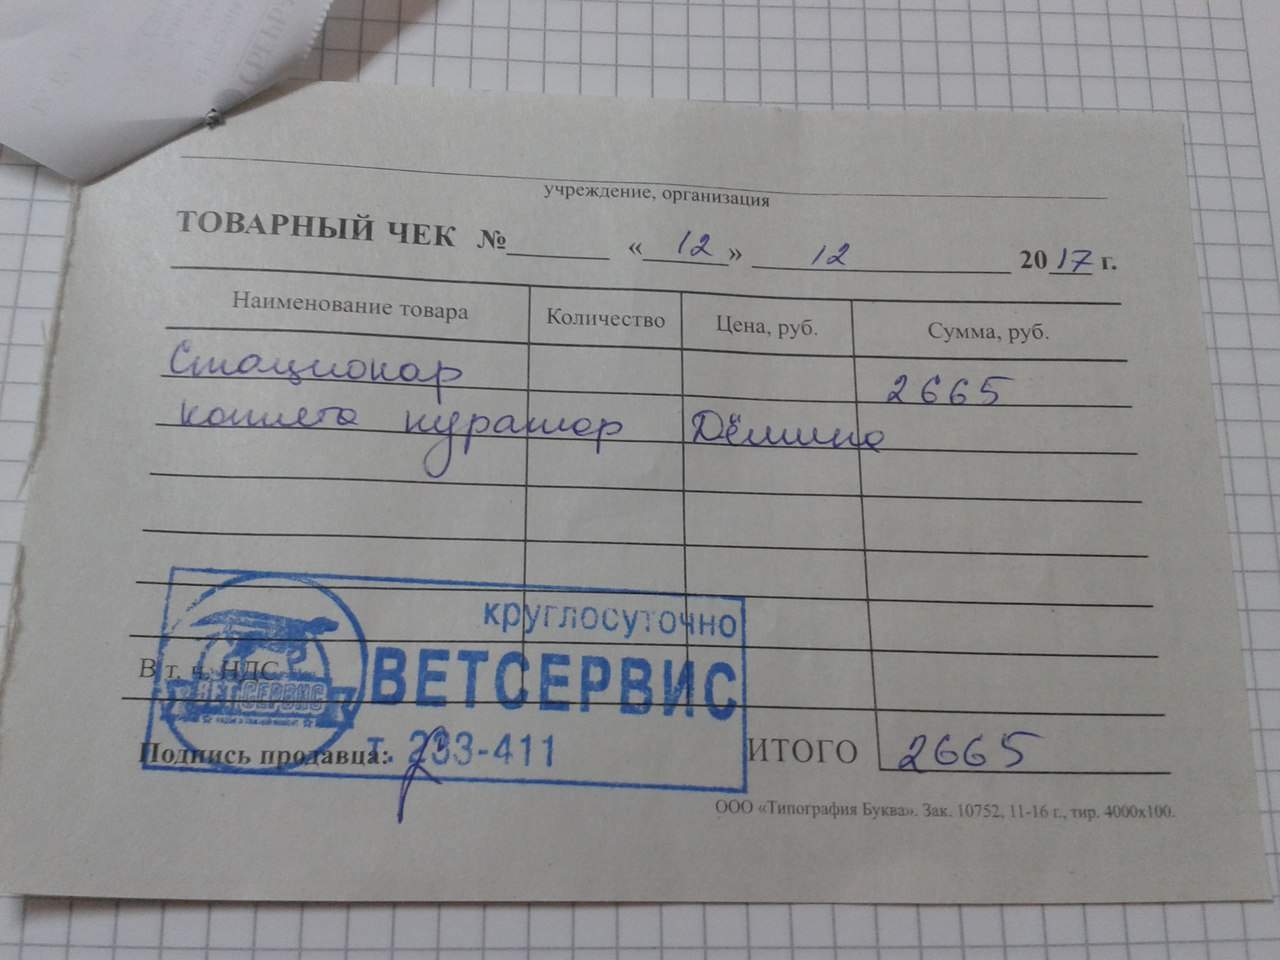 учреждение, организация
ТОВАРНЫЙ ЧЕК № «12» 12 2017 г.
Наименование товара Количество Цена, руб. Сумма, руб.
Стационар 2665
котята куратор Дёмина
круглосуточно
ВЕТСЕРВИС
В т. ч. НДС
ВЕТСЕРВИС
т. 233-411
Подпись продавца: ИТОГО 2665
ООО «Типография Буква». Зак. 10752, 11-16 г., тир. 4000х100.